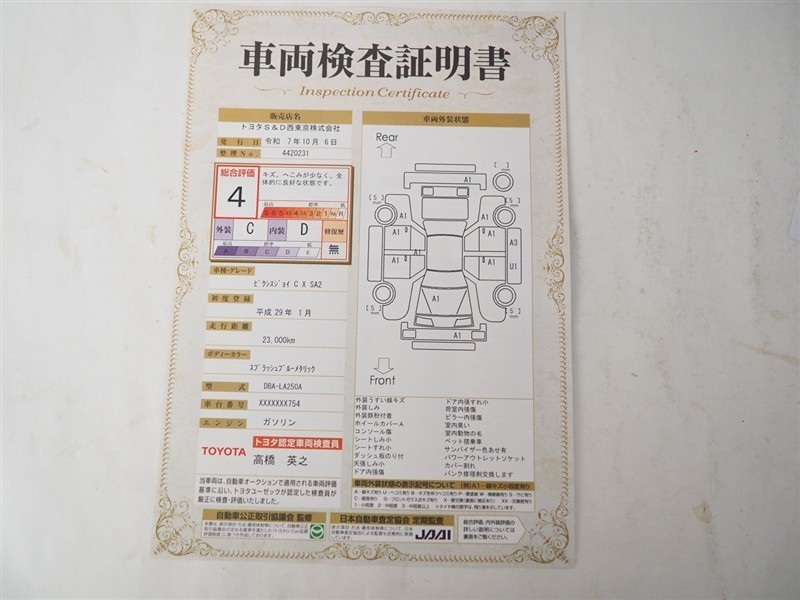 車両検査証明書
Inspection Certificate
販売店名
トヨタS&D西東京株式会社
発行日 令和 7年10月 6日
整理No. 4420231
総合評価
4
キズ、へこみが少なく、全
体的に良好な状態です。
最高 標準 低
外装 C 内装 D 修復歴
無
最高 標準 低
A B C D E
車種・グレード
ピクシスジョイ C X SA2
初度登録
平成 29年 1月
走行距離
23,000km
ボディーカラー
スプラッシュブルーメタリック
型式 DBA-LA250A
車台番号 XXXXXXX754
エンジン ガソリン
TOYOTA トヨタ認定車両検査員
高橋 英之
当車両は、自動車オークションで適用される車両評価
基準に沿い、トヨタユーゼックが認定した検査員が
厳正に検査・評価いたしました。
車両外装状態
Rear
A1
[ 5 ] mm
[ 5 ] mm
A1
A1
A1
A1
A1
A1
A3
U1
A1
A1
[ 5 ] mm
[ 5 ] mm
Front
外装うすい線キズ
外装しみ
外装鉄粉付着
ホイールカバーA
コンソール傷
シートしみ小
シートすれ小
ダッシュ板のり付
天張しみ小
ドア内張傷
ドア内張すれ小
荷室内張傷
ピラー内張傷
室内臭い
室内動物の毛
ペット搭乗車
サンバイザー色あせ有
パワーアウトレットソケット
カバー割れ
パンク修理剤交換します
車両外装状態の表示記号について (例)A1→線キズ小程度有り
自動車公正取引協議会 監修
日本自動車査定協会 定期監査
JAAI
総合評価、内外装評価の
詳しい説明については
裏面をご覧ください。